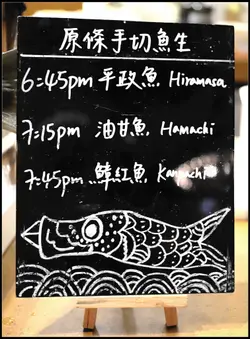 原條手切魚生
6:45pm 平政魚 Hiramasa
7:15pm 油甘魚 Hamachi
7:45pm 鰤紅魚 Kanpachi